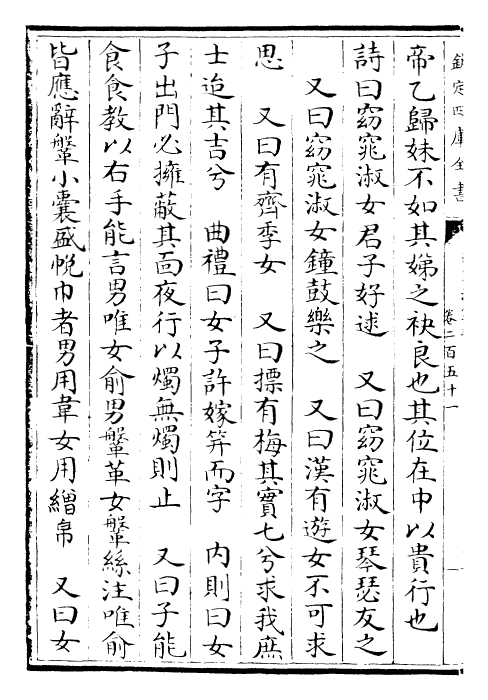 欽定四庫全書
卷二百五十一
帝乙歸妹不如其娣之袂良也其位在中以貴行也
詩曰窈窕淑女君子好逑　又曰窈窕淑女琴瑟友之
又曰窈窕淑女鐘鼓樂之　又曰漢有遊女不可求
思　又曰有齊季女　又曰摽有梅其實七兮求我庶
士迨其吉兮　曲禮曰女子許嫁笄而字　內則曰女
子出門必擁蔽其面夜行以燭無燭則止　又曰子能
食食教以右手能言男唯女俞男鞶革女鞶絲注唯俞
皆應辭鞶小囊盛帨巾者男用韋女用繒帛　又曰女